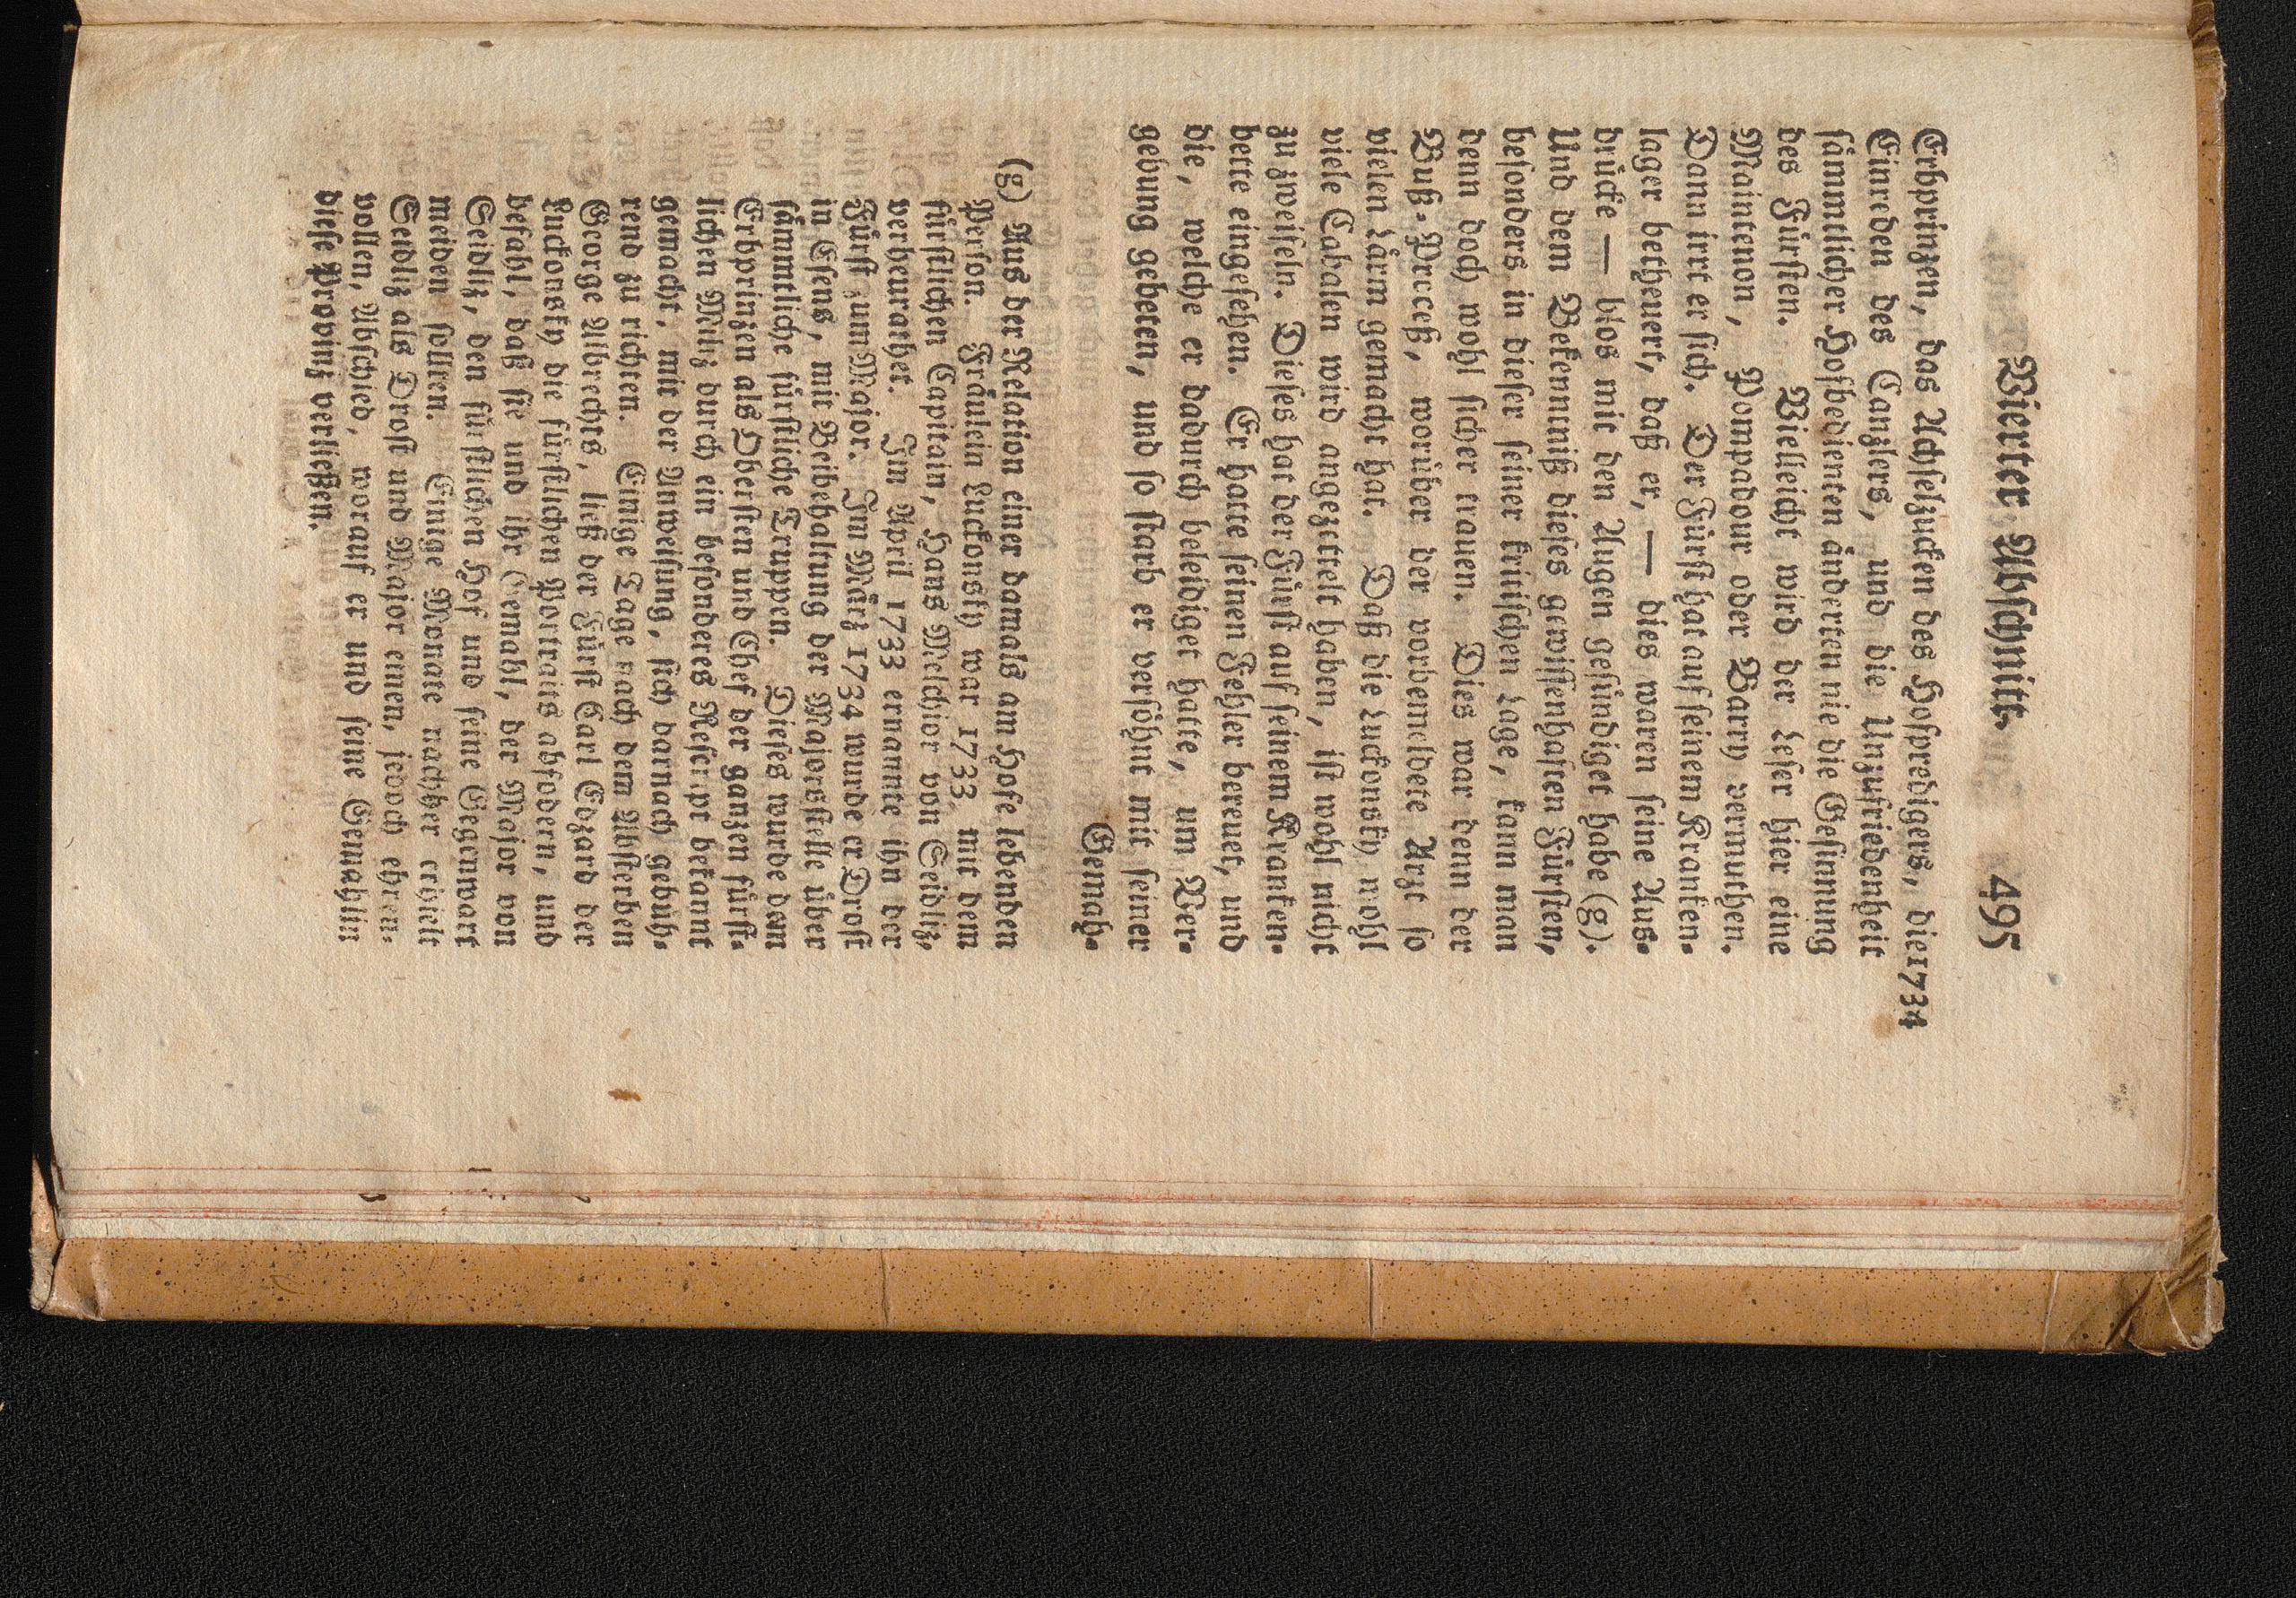 Vierter Abſchnitt. 495
Erbprinzen, das Achſelzucken des Hofpredigers, die 1734
Einreden des Canzlers, und die Unzufriedenheit
ſämmtlicher Hofbedienten änderten nie die Geſinnung
des Fürſten. Vielleicht wird der Leſer hier eine
Maintenon, Pompadour oder Barry vermuthen.
Dann irrt er ſich. Der Fürſt hat auf ſeinem Kranken-
lager betheuert, daß er, — dies waren ſeine Aus-
drücke — blos mit den Augen geſündiget habe (g).
Und dem Bekenntniß dieſes gewiſſenhaften Fürſten,
beſonders in dieſer ſeiner kritiſchen Lage, kann man
denn doch wohl ſicher trauen. Dies war denn der
Buß-Proceß, worüber der vorbemeldete Arzt ſo
vielen Lärm gemacht hat. Daß die Luckonsky wohl
viele Cabalen wird angezettelt haben, iſt wohl nicht
zu zweifeln. Dieſes hat der Fürſt auf ſeinem Kranken-
bette eingeſehen. Er hatte ſeinen Fehler bereuet, und
die, welche er dadurch beleidiget hatte, um Ver-
gebung gebeten, und ſo ſtarb er verſöhnt mit ſeiner
Gemah-
(g) Aus der Relation einer damals am Hofe lebenden
Perſon. Fräulein Luckonsky war 1733 mit dem
fürſtlichen Capitain, Hans Melchior von Seidliz,
verheurathet. Im April 1733 ernannte ihn der
Fürſt zum Major. Im März 1734 wurde er Droſt
in Eſens, mit Beibehaltung der Majorsſtelle über
ſämmtliche fürſtliche Truppen. Dieſes wurde dem
Erbprinzen als Oberſten und Chef der ganzen fürſt-
lichen Miliz durch ein beſonderes Reſcript bekannt
gemacht, mit der Anweiſung, ſich darnach gebüh-
rend zu richten. Einige Tage nach dem Abſterben
George Albrechts, ließ der Fürſt Carl Edzard der
Luckonsky die fürſtlichen Portraits abfodern, und
befahl, daß ſie und ihr Gemahl, der Major von
Seidliz, den fürſtlichen Hof und ſeine Gegenwart
meiden ſollten. Einige Monate nachher erhielt
Seidliz als Droſt und Major einen, jedoch ehren-
vollen, Abſchied, worauf er und ſeine Gemahlin
dieſe Provinz verließen.